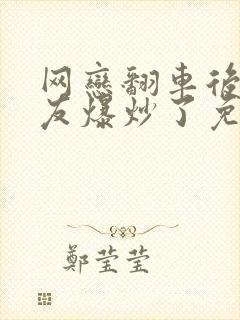 网戀翻車後
友爆炒了免
鄭莹莹